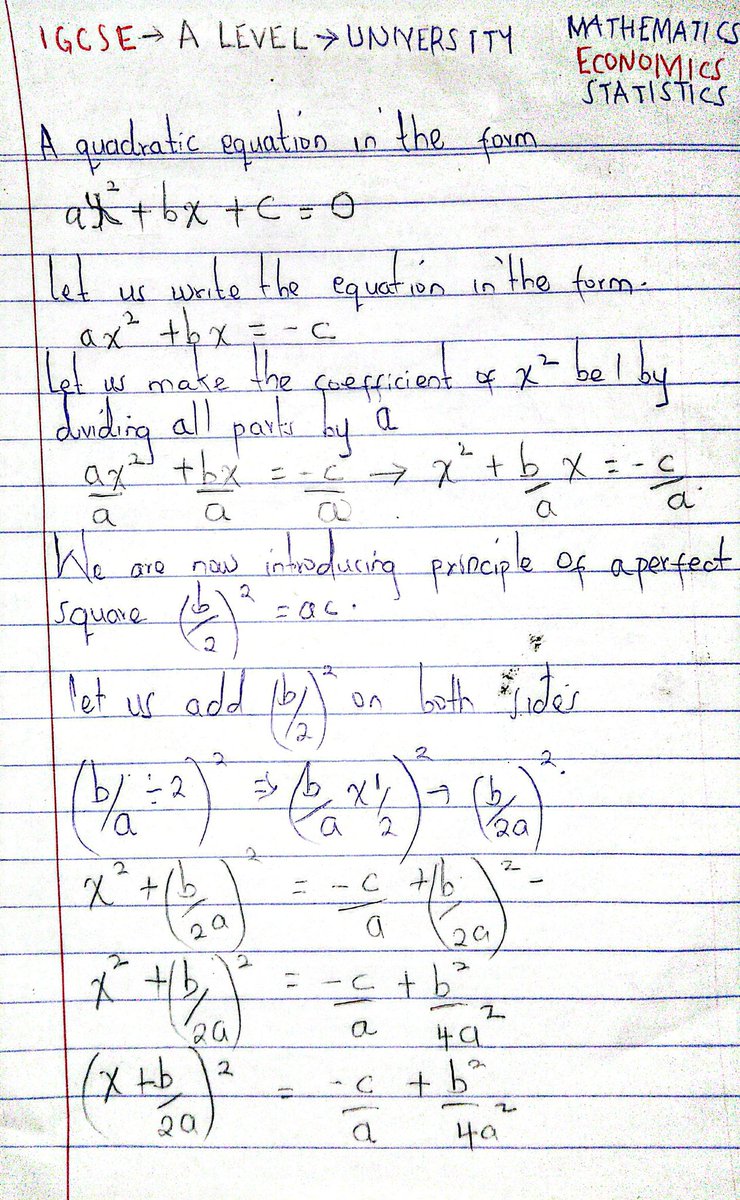 IGCSE → A LEVEL → UNIVERSITY MATHEMATICS
ECONOMICS
STATISTICS
A quadratic equation in the form
ax² + bx + c = 0
let us write the equation in the form.
ax² + bx = -c
Let us make the coefficient of x² be 1 by
dividing all parts by a
ax²/a + bx/a = -c/a → x² + b/a x = -c/a.
We are now introducing principle of a perfect
square (b/2)² = ac.
let us add (b/2)² on both sides
(b/a ÷ 2)² ⇒ (b/a x 1/2)² → (b/2a)².
x² + (b/2a)² = -c/a + (b/2a)² -
x² + (b/2a)² = -c/a + b²/4a²
(x + b/2a)² = -c/a + b²/4a²